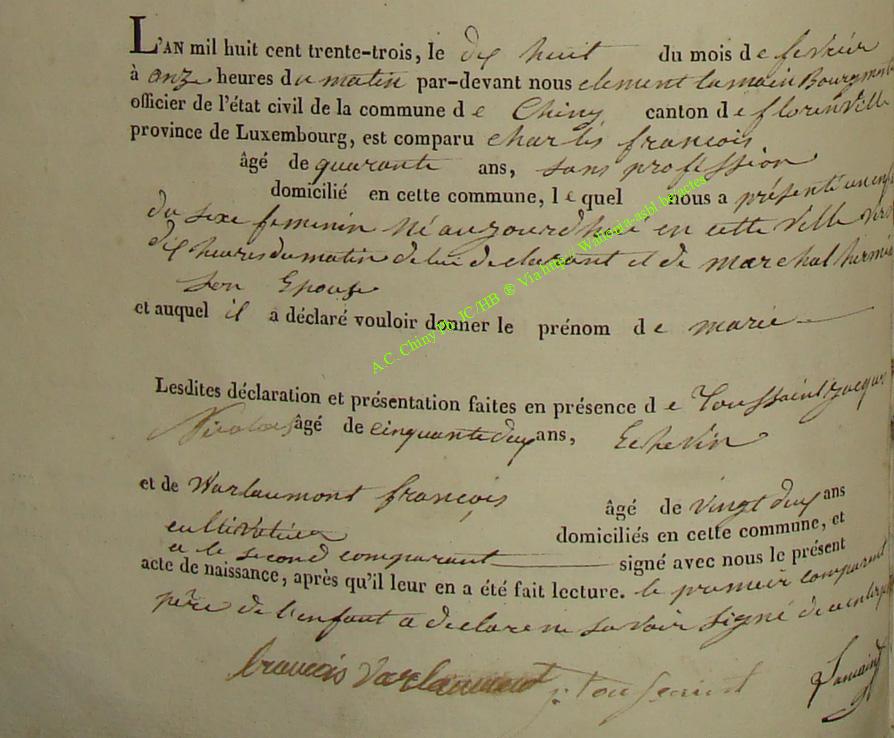 L'AN mil huit cent trente-trois, le dix huit du mois de fevrier
à onze heures du matin par-devant nous clement Lamain Bourgmestre
officier de l'état civil de la commune de Chiny, canton de florenville
province de Luxembourg, est comparu charles françois
âgé de quarante ans, sans profession
domicilié en cette commune, lequel nous a présenté un enf
du sexe feminin né aujourd'hui en cette ville vers
dix heures du matin de lui declarant et de marchal
son Epouse
et auquel il a déclaré vouloir donner le prénom de marie
Lesdites déclaration et présentation faites en présence de Toussaint jacque
Nicolas âgé de cinquante deux ans, Echevin
et de Warlaumont françois âgé de vingt deux ans
cultivateur domiciliés en cette commune, et
a le second comparant signé avec nous le présent
acte de naissance, après qu'il leur en a été fait lecture. le premier comparant
père de l'enfant a declare ne savoir signé de
francois Varlaumont j. toussaint Lamain
A.C. Chiny Ph. JC/HB ® Via http:// Wallonia-asbl be/actes